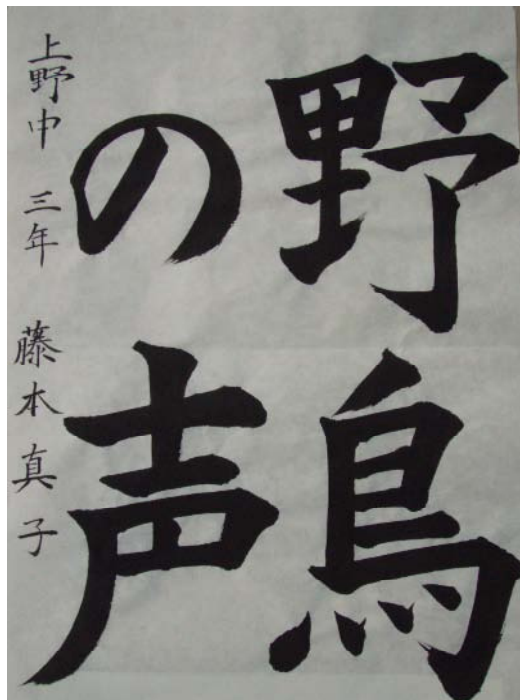 野鳥
の声
上野中 三年 藤本真子